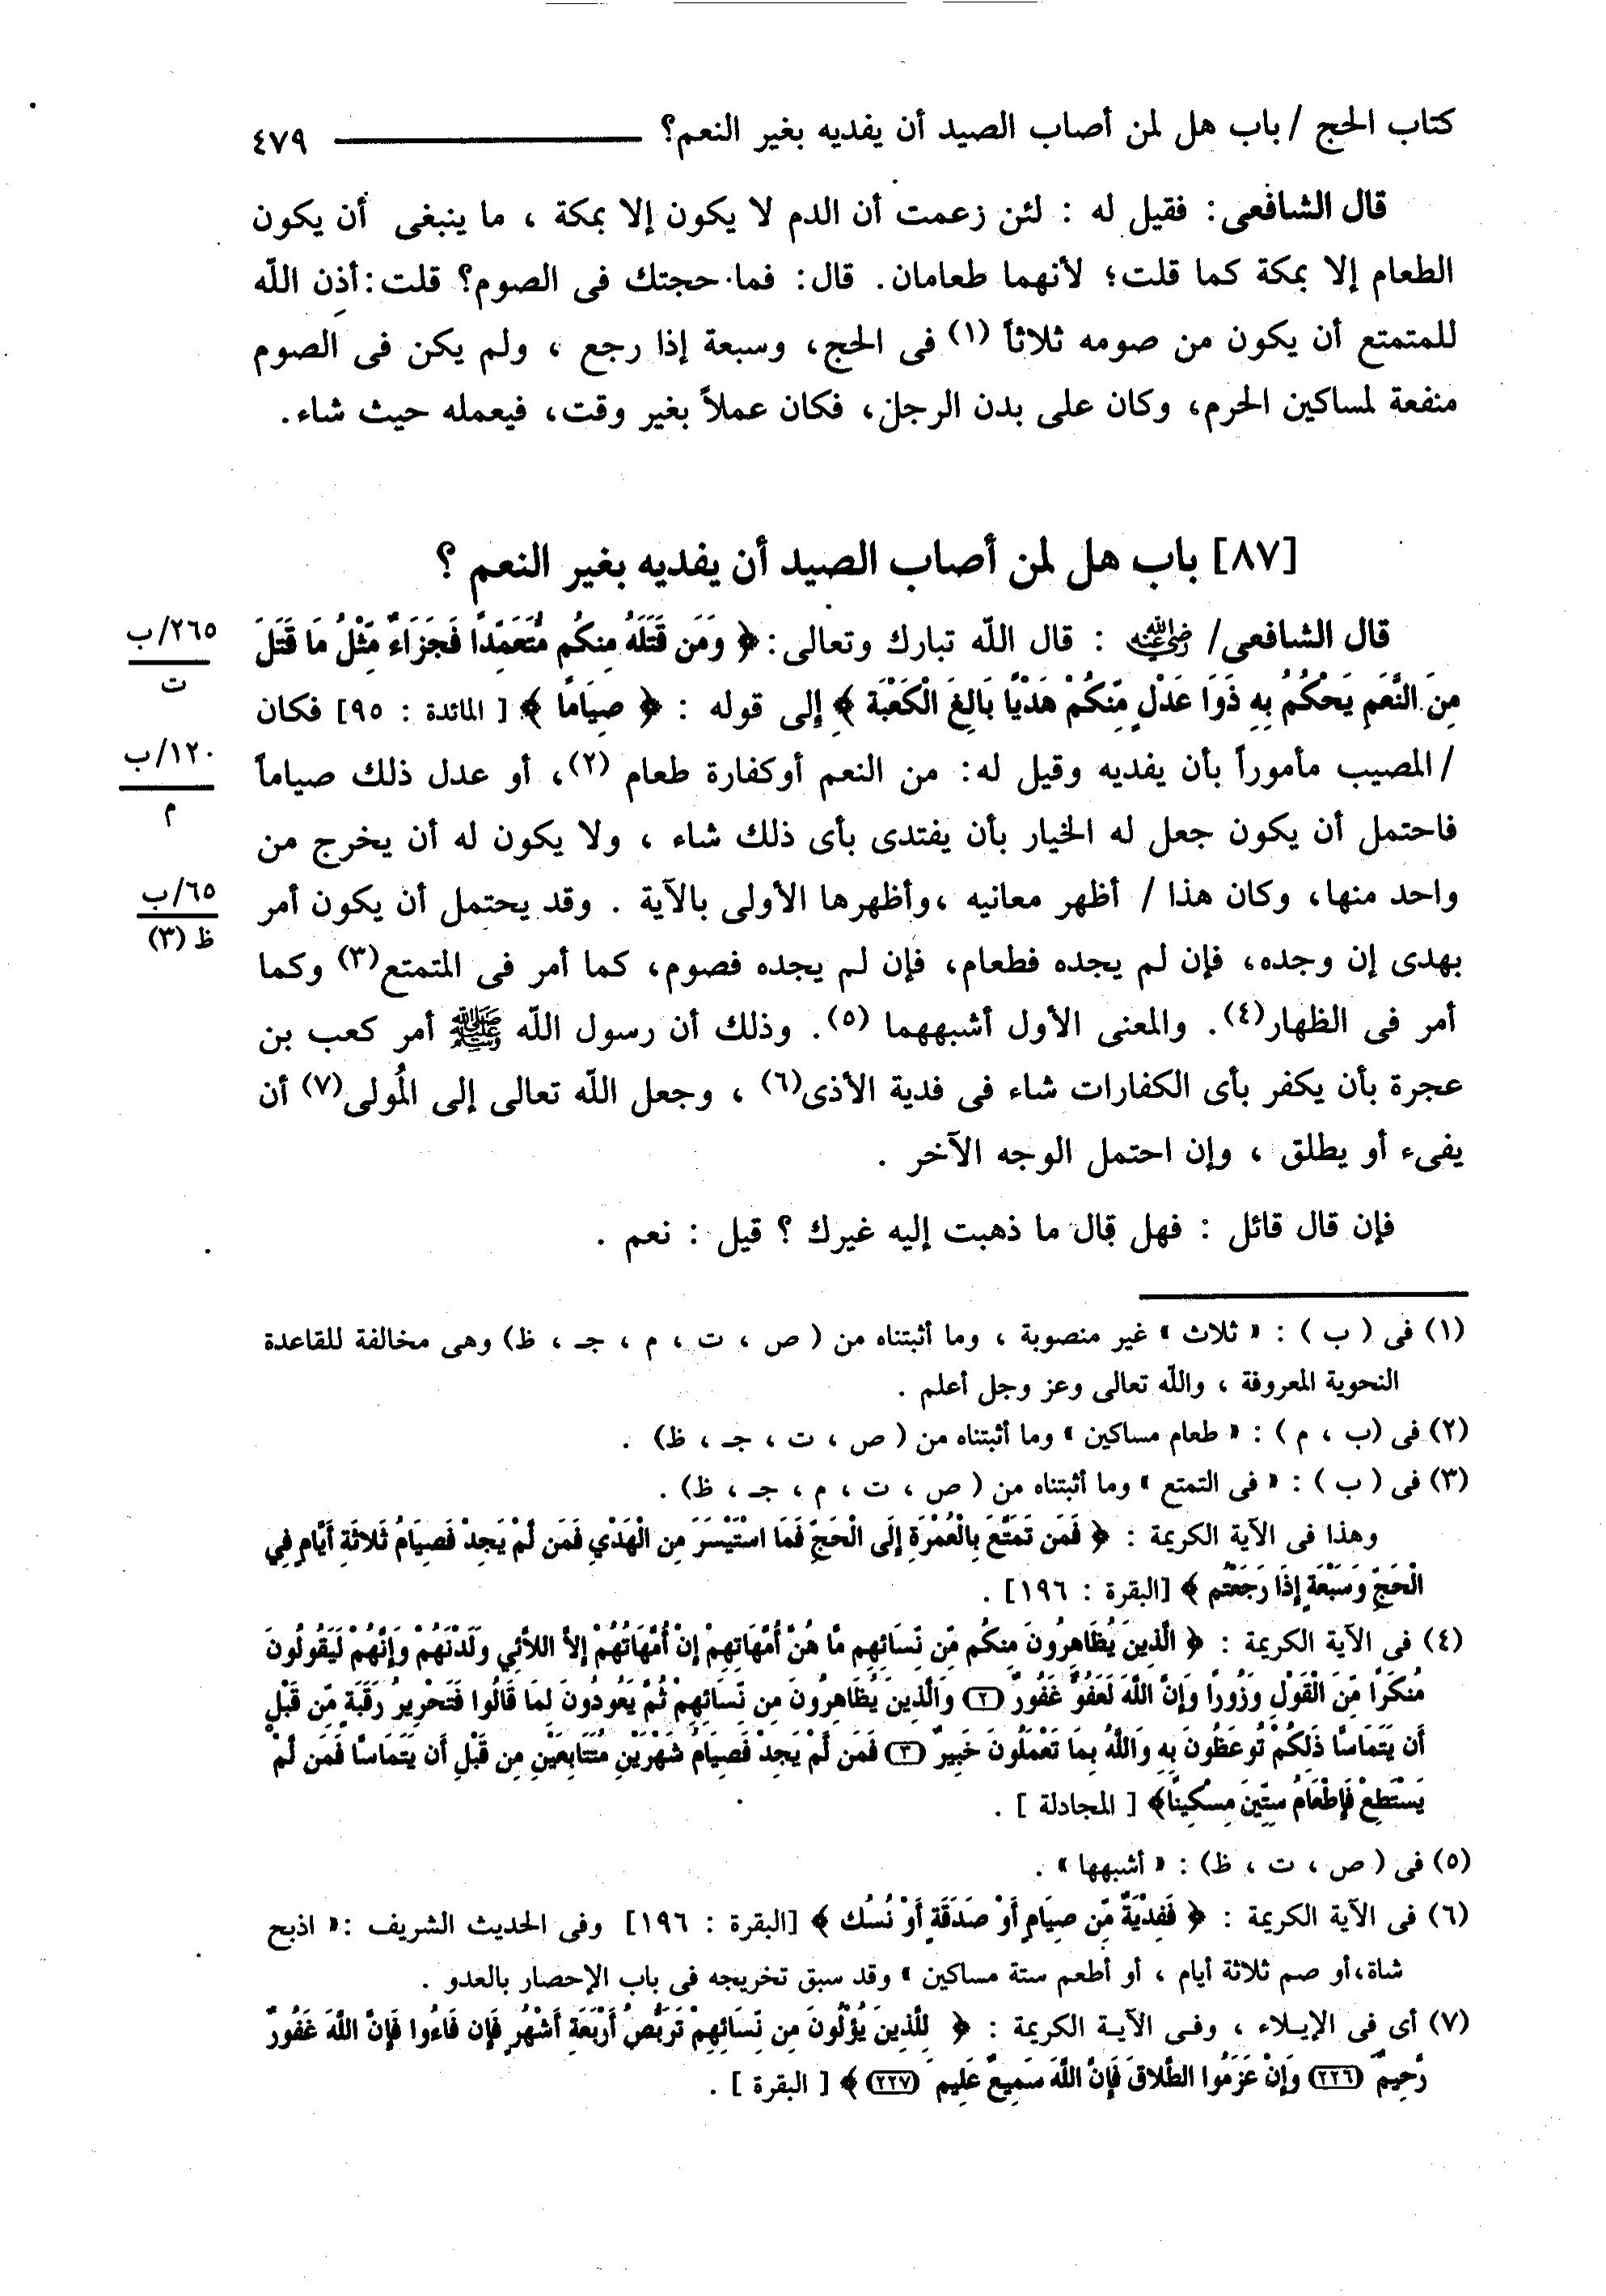 كتاب الحج / باب هل لمن أصاب الصيد أن يفديه بغير النعم؟ ٤٧٩
قال الشافعى: فقيل له : لئن زعمت أن الدم لا يكون إلا بمكة ، ما ينبغى أن يكون
الطعام إلا بمكة كما قلت؛ لأنهما طعامان. قال: فما حجتك فى الصوم؟ قلت: أذِن الله
للمتمتع أن يكون من صومه ثلاثاً (١) فى الحج، وسبعة إذا رجع ، ولم يكن فى الصوم
منفعة لمساكين الحرم، وكان على بدن الرجل، فكان عملاً بغير وقت، فيعمله حيث شاء.
[٨٧] باب هل لمن أصاب الصيد أن يفديه بغير النعم ؟
قال الشافعى/ رضي الله عنه : قال الله تبارك وتعالى: ﴿ وَمَن قَتَلَهُ مِنكُم مُّتَعَمِّدًا فَجَزَاءٌ مِّثْلُ مَا قَتَلَ
٢٦٥/ب
ت
مِنَ النَّعَمِ يَحْكُمُ بِهِ ذَوَا عَدْلٍ مِّنكُمْ هَدْيًا بَالِغَ الْكَعْبَةِ ﴾ إلى قوله : ﴿ صِيَامًا ﴾ [ المائدة : ٩٥] فكان
/ المصيب مأموراً بأن يفديه وقيل له: من النعم أوكفارة طعام (٢)، أو عدل ذلك صياماً
١٢٠/ب
م
فاحتمل أن يكون جعل له الخيار بأن يفتدى بأى ذلك شاء ، ولا يكون له أن يخرج من
واحد منها، وكان هذا / أظهر معانيه ،وأظهرها الأولى بالآية . وقد يحتمل أن يكون أمر
٦٥/ب
ظ (٣)
بهدى إن وجده، فإن لم يجده فطعام، فإن لم يجده فصوم، كما أمر فى المتمتع(٣) وكما
أمر فى الظهار(٤). والمعنى الأول أشبههما (٥). وذلك أن رسول الله ﷺ أمر كعب بن
عجرة بأن يكفر بأى الكفارات شاء فى فدية الأذى(٦) ، وجعل الله تعالى إلى المُولى(٧) أن
يفىء أو يطلق ، وإن احتمل الوجه الآخر .
فإن قال قائل : فهل قال ما ذهبت إليه غيرك ؟ قيل : نعم .
(١) فى ( ب ) : « ثلاث » غير منصوبة ، وما أثبتناه من ( ص ، ت ، م ، جـ ، ظ) وهى مخالفة للقاعدة
النحوية المعروفة ، والله تعالى وعز وجل أعلم .
(٢) فى (ب ، م ) : « طعام مساكين » وما أثبتناه من ( ص ، ت ، جـ ، ظ) .
(٣) فى ( ب ) : « فى التمتع » وما أثبتناه من ( ص ، ت ، م ، جـ ، ظ) .
وهذا فى الآية الكريمة : ﴿ فَمَن تَمَتَّعَ بِالْعُمْرَةِ إِلَى الْحَجِّ فَمَا اسْتَيْسَرَ مِنَ الْهَدْيِ فَمَن لَّمْ يَجِدْ فَصِيَامُ ثَلاثَةِ أَيَّامٍ فِي
الْحَجِّ وَسَبْعَةٍ إِذَا رَجَعْتُمْ ﴾ [البقرة : ١٩٦] .
(٤) فى الآية الكريمة : ﴿ الَّذِينَ يُظَاهِرُونَ مِنكُم مِّن نِّسَائِهِم مَّا هُنَّ أُمَّهَاتِهِمْ إِنْ أُمَّهَاتُهُمْ إِلاَّ اللاَّئِي وَلَدْنَهُمْ وَإِنَّهُمْ لَيَقُولُونَ
مُنكَرًا مِّنَ الْقَوْلِ وَزُورًا وَإِنَّ اللَّهَ لَعَفُوٌّ غَفُورٌ (٢) وَالَّذِينَ يُظَاهِرُونَ مِن نِّسَائِهِمْ ثُمَّ يَعُودُونَ لِمَا قَالُوا فَتَحْرِيرُ رَقَبَةٍ مِّن قَبْلِ
أَن يَتَمَاسَّا ذَلِكُمْ تُوعَظُونَ بِهِ وَاللَّهُ بِمَا تَعْمَلُونَ خَبِيرٌ (٣) فَمَن لَّمْ يَجِدْ فَصِيَامُ شَهْرَيْنِ مُتَتَابِعَيْنِ مِن قَبْلِ أَن يَتَمَاسَّا فَمَن لَّمْ
يَسْتَطِعْ فَإِطْعَامُ سِتِّينَ مِسْكِينًا﴾ [ المجادلة ] .
(٥) فى ( ص ، ت ، ظ) : « أشبهها » .
(٦) فى الآية الكريمة : ﴿ فَفِدْيَةٌ مِّن صِيَامٍ أَوْ صَدَقَةٍ أَوْ نُسُك ﴾ [البقرة : ١٩٦] وفى الحديث الشريف :« اذبح
شاة،أو صم ثلاثة أيام ، أو أطعم ستة مساكين » وقد سبق تخريجه فى باب الإحصار بالعدو .
(٧) أى فى الإيلاء ، وفى الآية الكريمة : ﴿ لِلَّذِينَ يُؤْلُونَ مِن نِّسَائِهِمْ تَرَبُّصُ أَرْبَعَةِ أَشْهُرٍ فَإِن فَاءُوا فَإِنَّ اللَّهَ غَفُورٌ
رَّحِيمٌ (٢٢٦) وَإِنْ عَزَمُوا الطَّلاقَ فَإِنَّ اللَّهَ سَمِيعٌ عَلِيمٌ (٢٢٧) ﴾ [ البقرة ] .